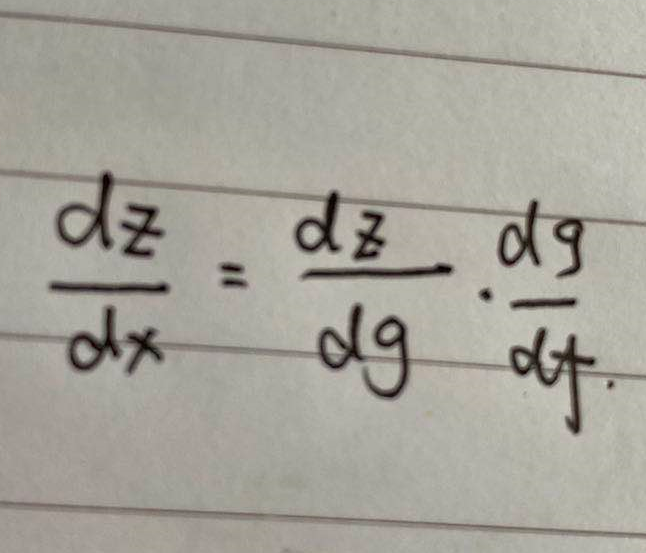 dz/dx = dz/dg · dg/df.